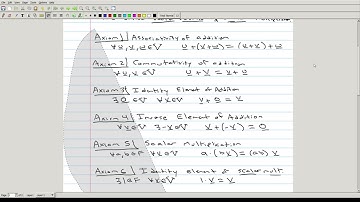 Axiom 1 | Associativity of addition
∀u,v,w∈V u+(v+w)=(u+v)+w
Axiom 2 | Commutativity of addition
∀u,v∈V u+v=v+u
Axiom 3 | Identity Element of Addition
∃0∈V ∀v∈V v+0=v
Axiom 4 | Inverse Element of Addition
∀v∈V ∃-v∈V v+(-v)=0
Axiom 5 | Scalar Multiplication
∀a,b∈F ∀v∈V a·(bv)=(ab)v
Axiom 6 | Identity element of scalar mult.
∃1∈F ∀v∈V 1·v=v